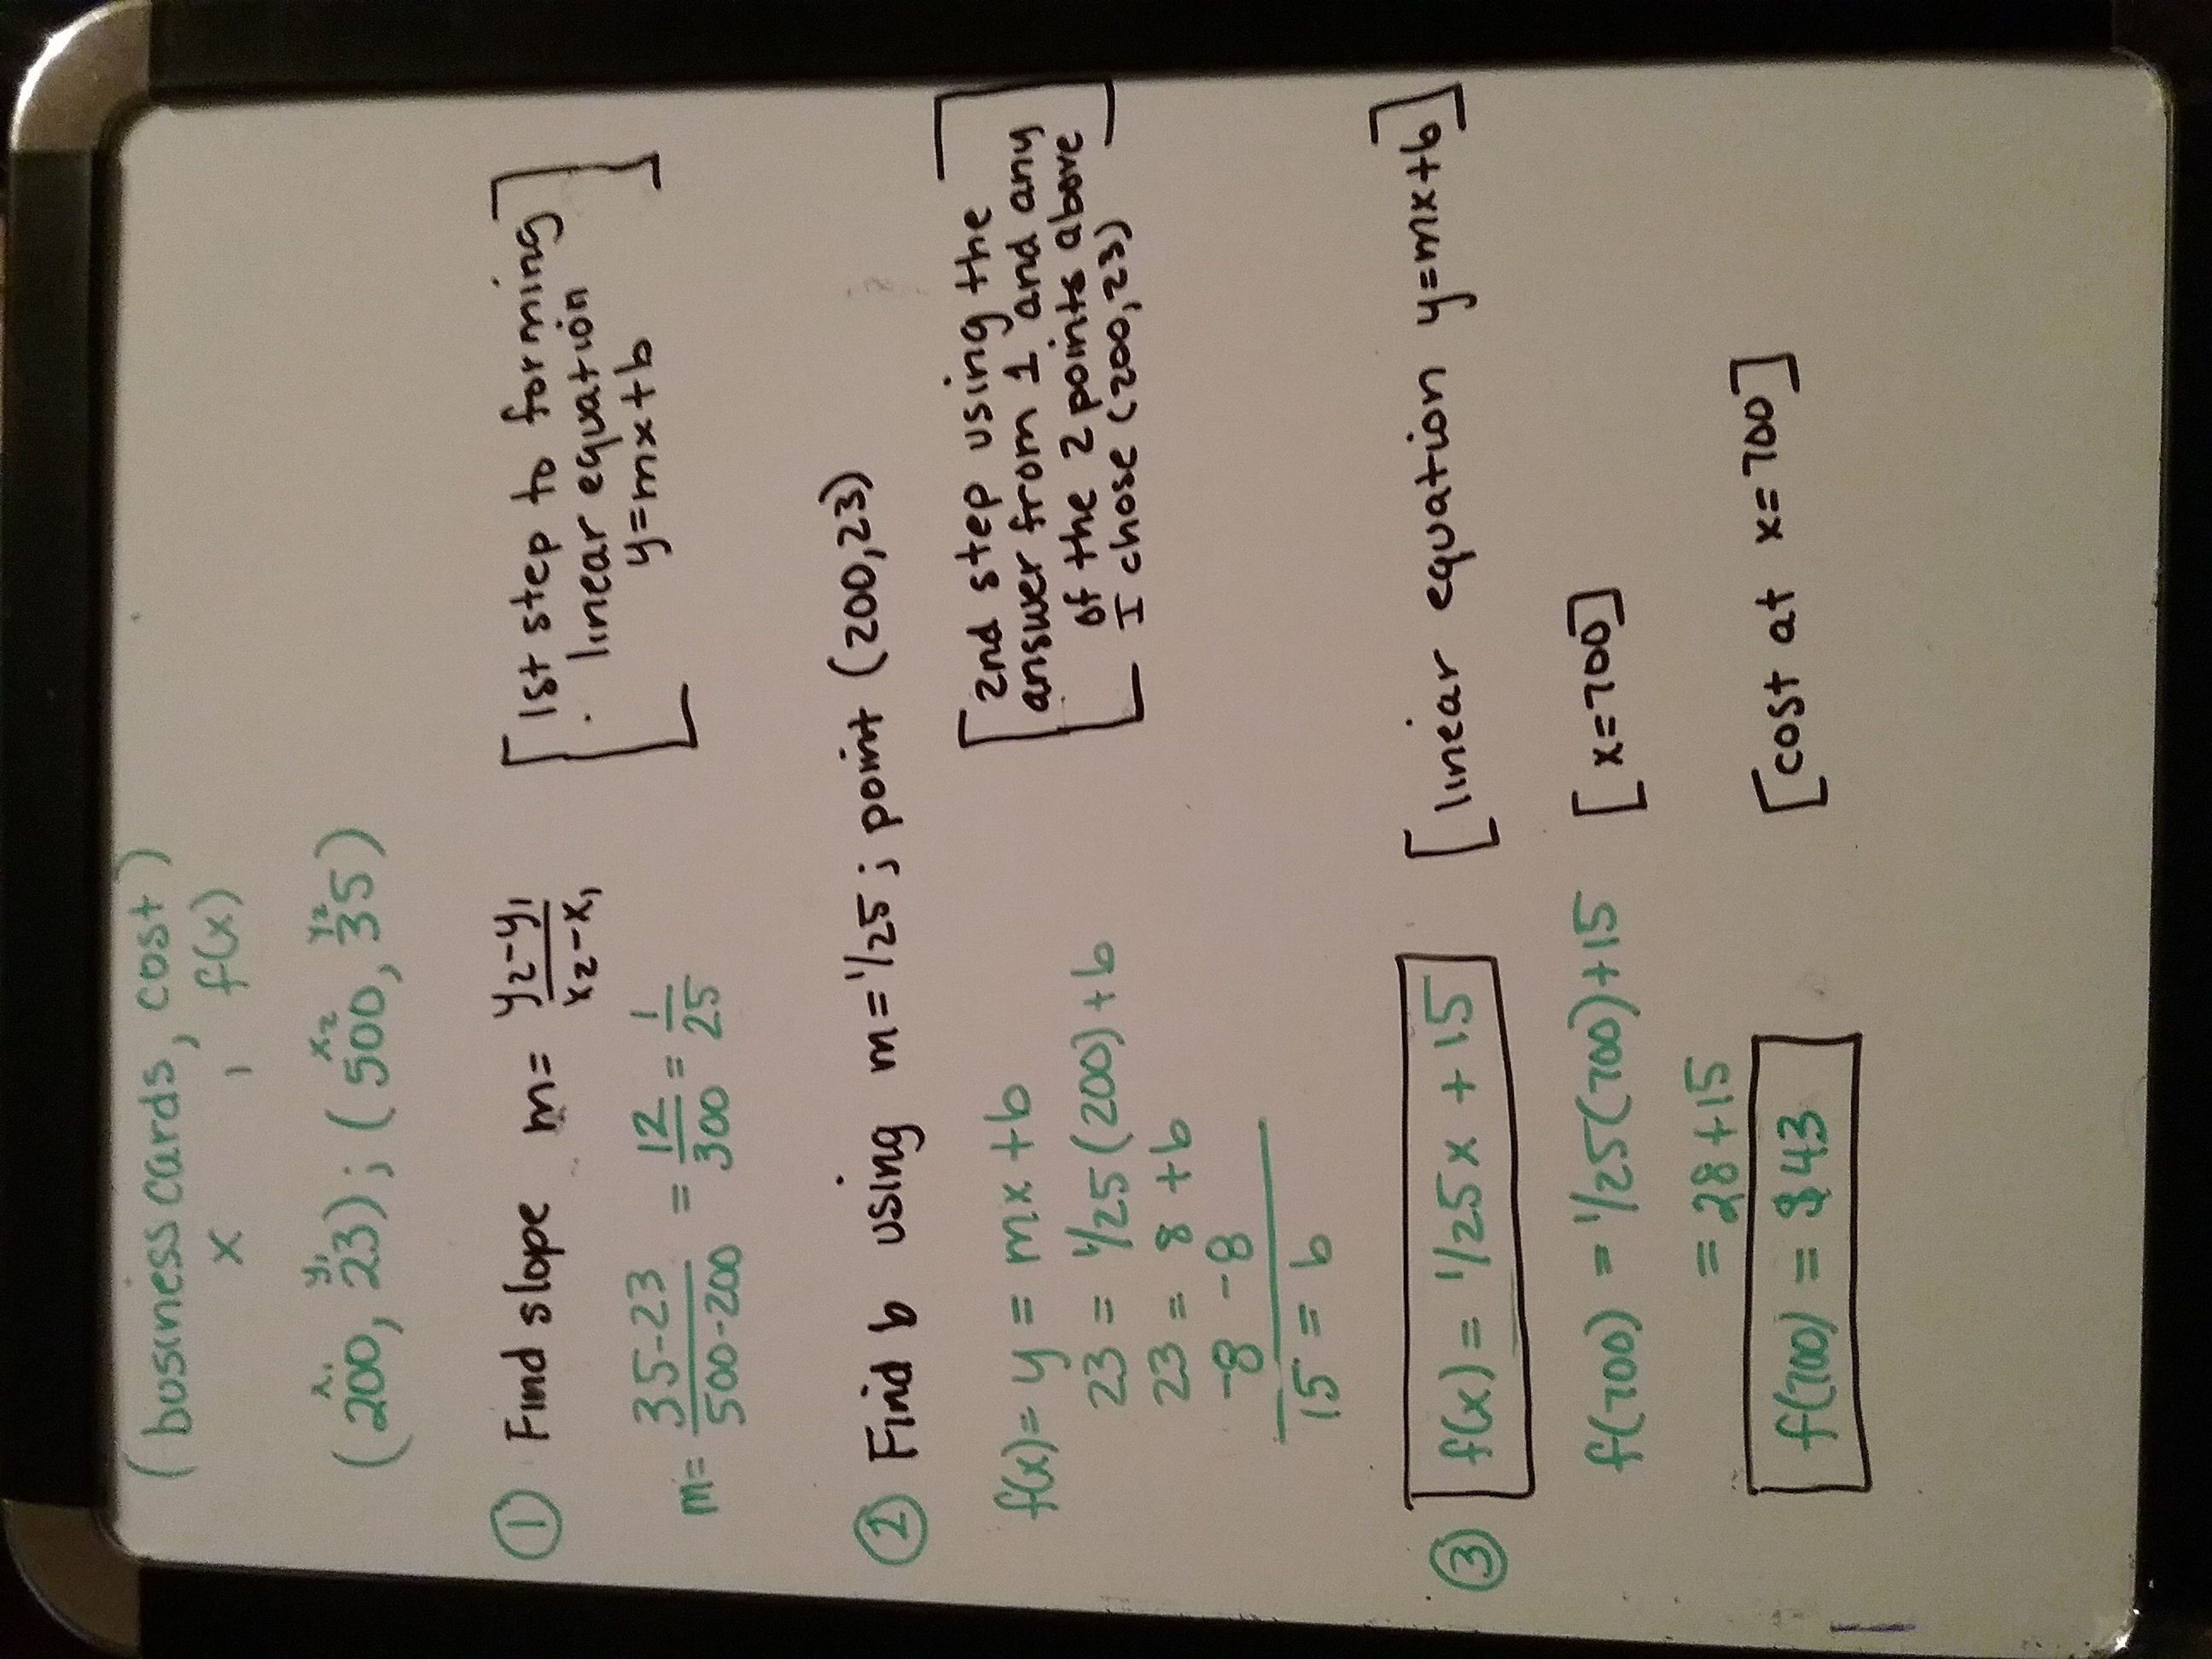 (business cards, cost)
x , f(x)
x₁ y₁ x₂ y₂
(200, 23); (500, 35)
① Find slope m = y₂-y₁/x₂-x₁
[1st step to forming
linear equation
y=mx+b]
m = 35-23/500-200 = 12/300 = 1/25
② Find b using m=1/25; point (200,23)
[2nd step using the
answer from 1 and any
of the 2 points above
I chose (200,23)]
f(x)= y = mx+b
23 = 1/25(200)+b
23 = 8+b
-8 -8
15 = b
③ f(x) = 1/25x + 15 [linear equation y=mx+b]
f(700) = 1/25(700)+15 [x=700]
= 28+15
f(700) = $43 [cost at x=700]